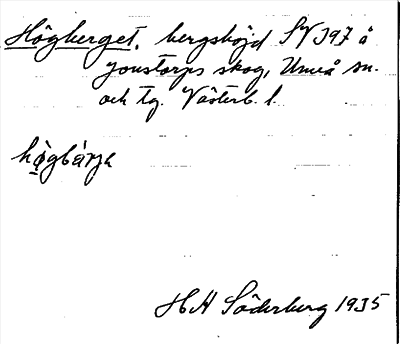 Högberget, bergshöjd SV 397 å
Jonstorps skog, Umeå sn.
och tg. Västerb. l.
hö̀gbárje
H H Söderberg 1935